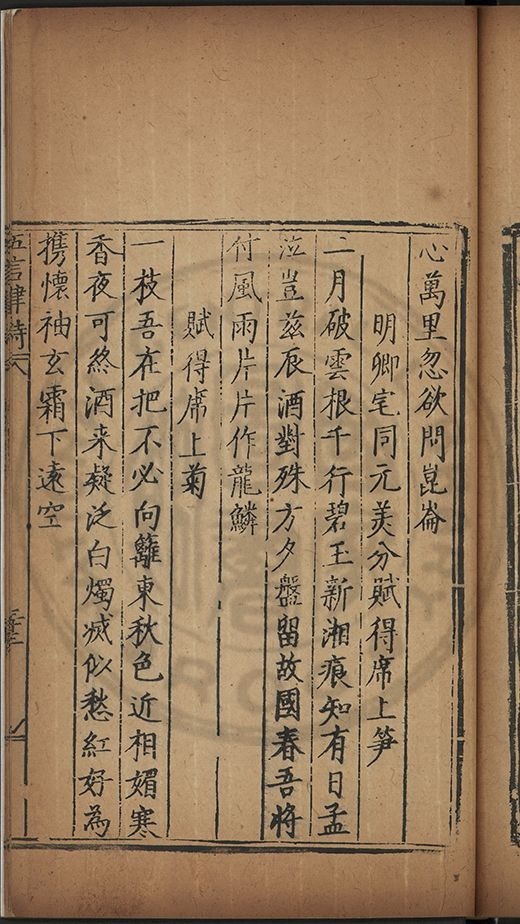 心萬里忽欲問崑崙
明卿宅同元美分賦得席上笋
二月破雲根千行碧玉新湘痕知有日孟
泣豈兹辰酒對殊方夕盤留故國春吾將
付風雨片片作龍鱗
賦得席上菊
一枝吾在把不必向籬東秋色近相媚寒
香夜可終酒来疑泛白燭滅似愁紅好為
携懷袖玄霜下遠空
五言律詩